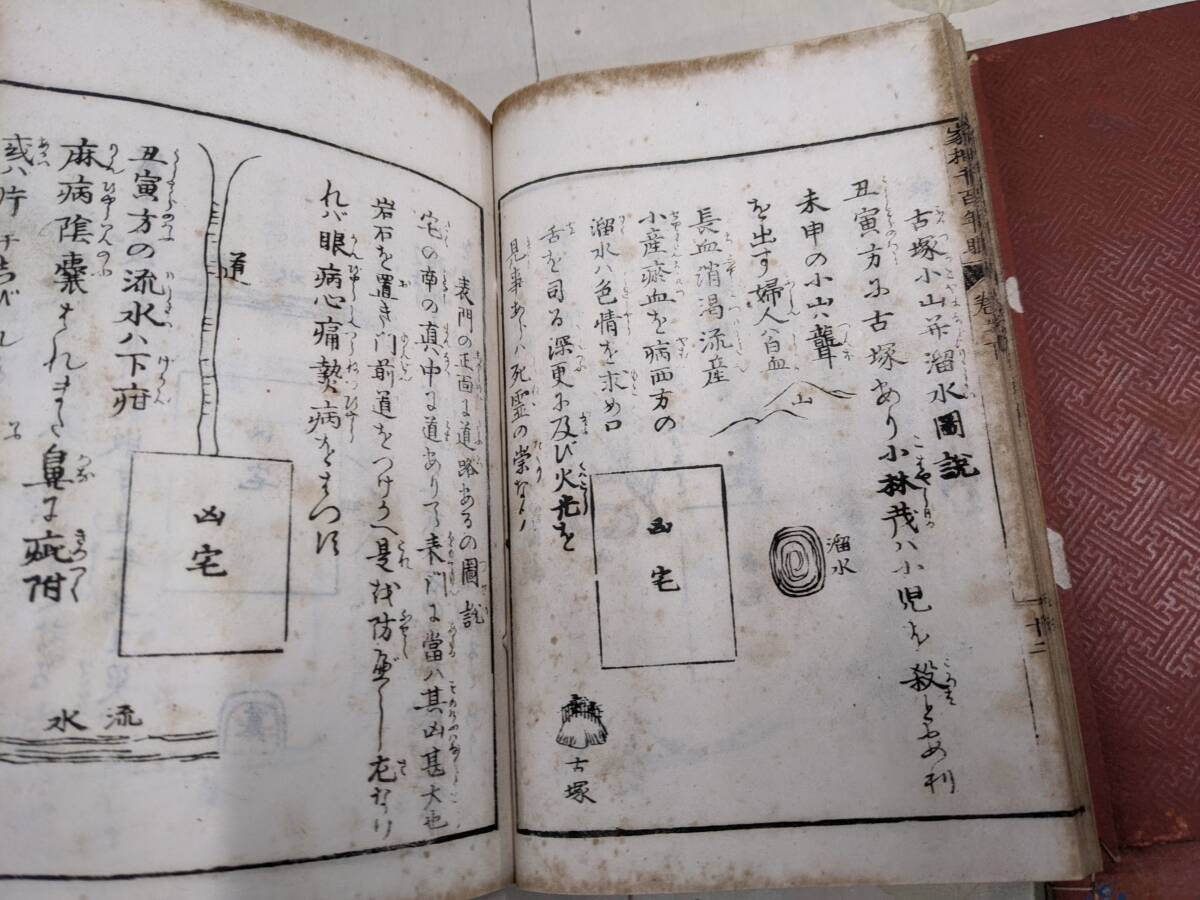 家相千百年眼
古塚小山并溜水圖説
丑寅方に古塚あり小林茂ハ小児を殺とふ刑
未申の小山ハ聾
を出す婦人ハ白血
長血消渇流産
小産瘀血を病西方の
溜水ハ色情を求め口
舌を司る深更に及び火光を
見事あらハ死霊の祟なり
山
溜水
凶宅
古塚
十二
表門の正面に道路あるの圖説
宅の南の真中に道ありて表門に當ハ其凶甚大也
岩石を置き門前道をつけかへ是を防ぐべし左なけ
れバ眼病心痛熱病をもつ
道
丑寅方の流水ハ下疳
麻病陰嚢
鼻に疵附
或ハ片
凶宅
流水